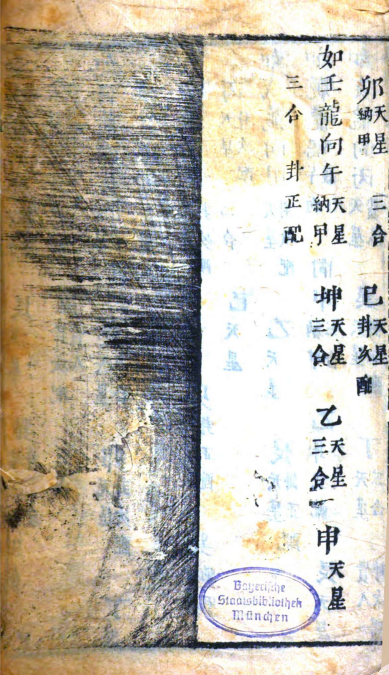 卯天星納甲三合巳天星卦次配
如壬龍向午天星納甲坤天星三合乙天星三合申天星
三合卦正配
Bayerische
Staatsbibliothek
München